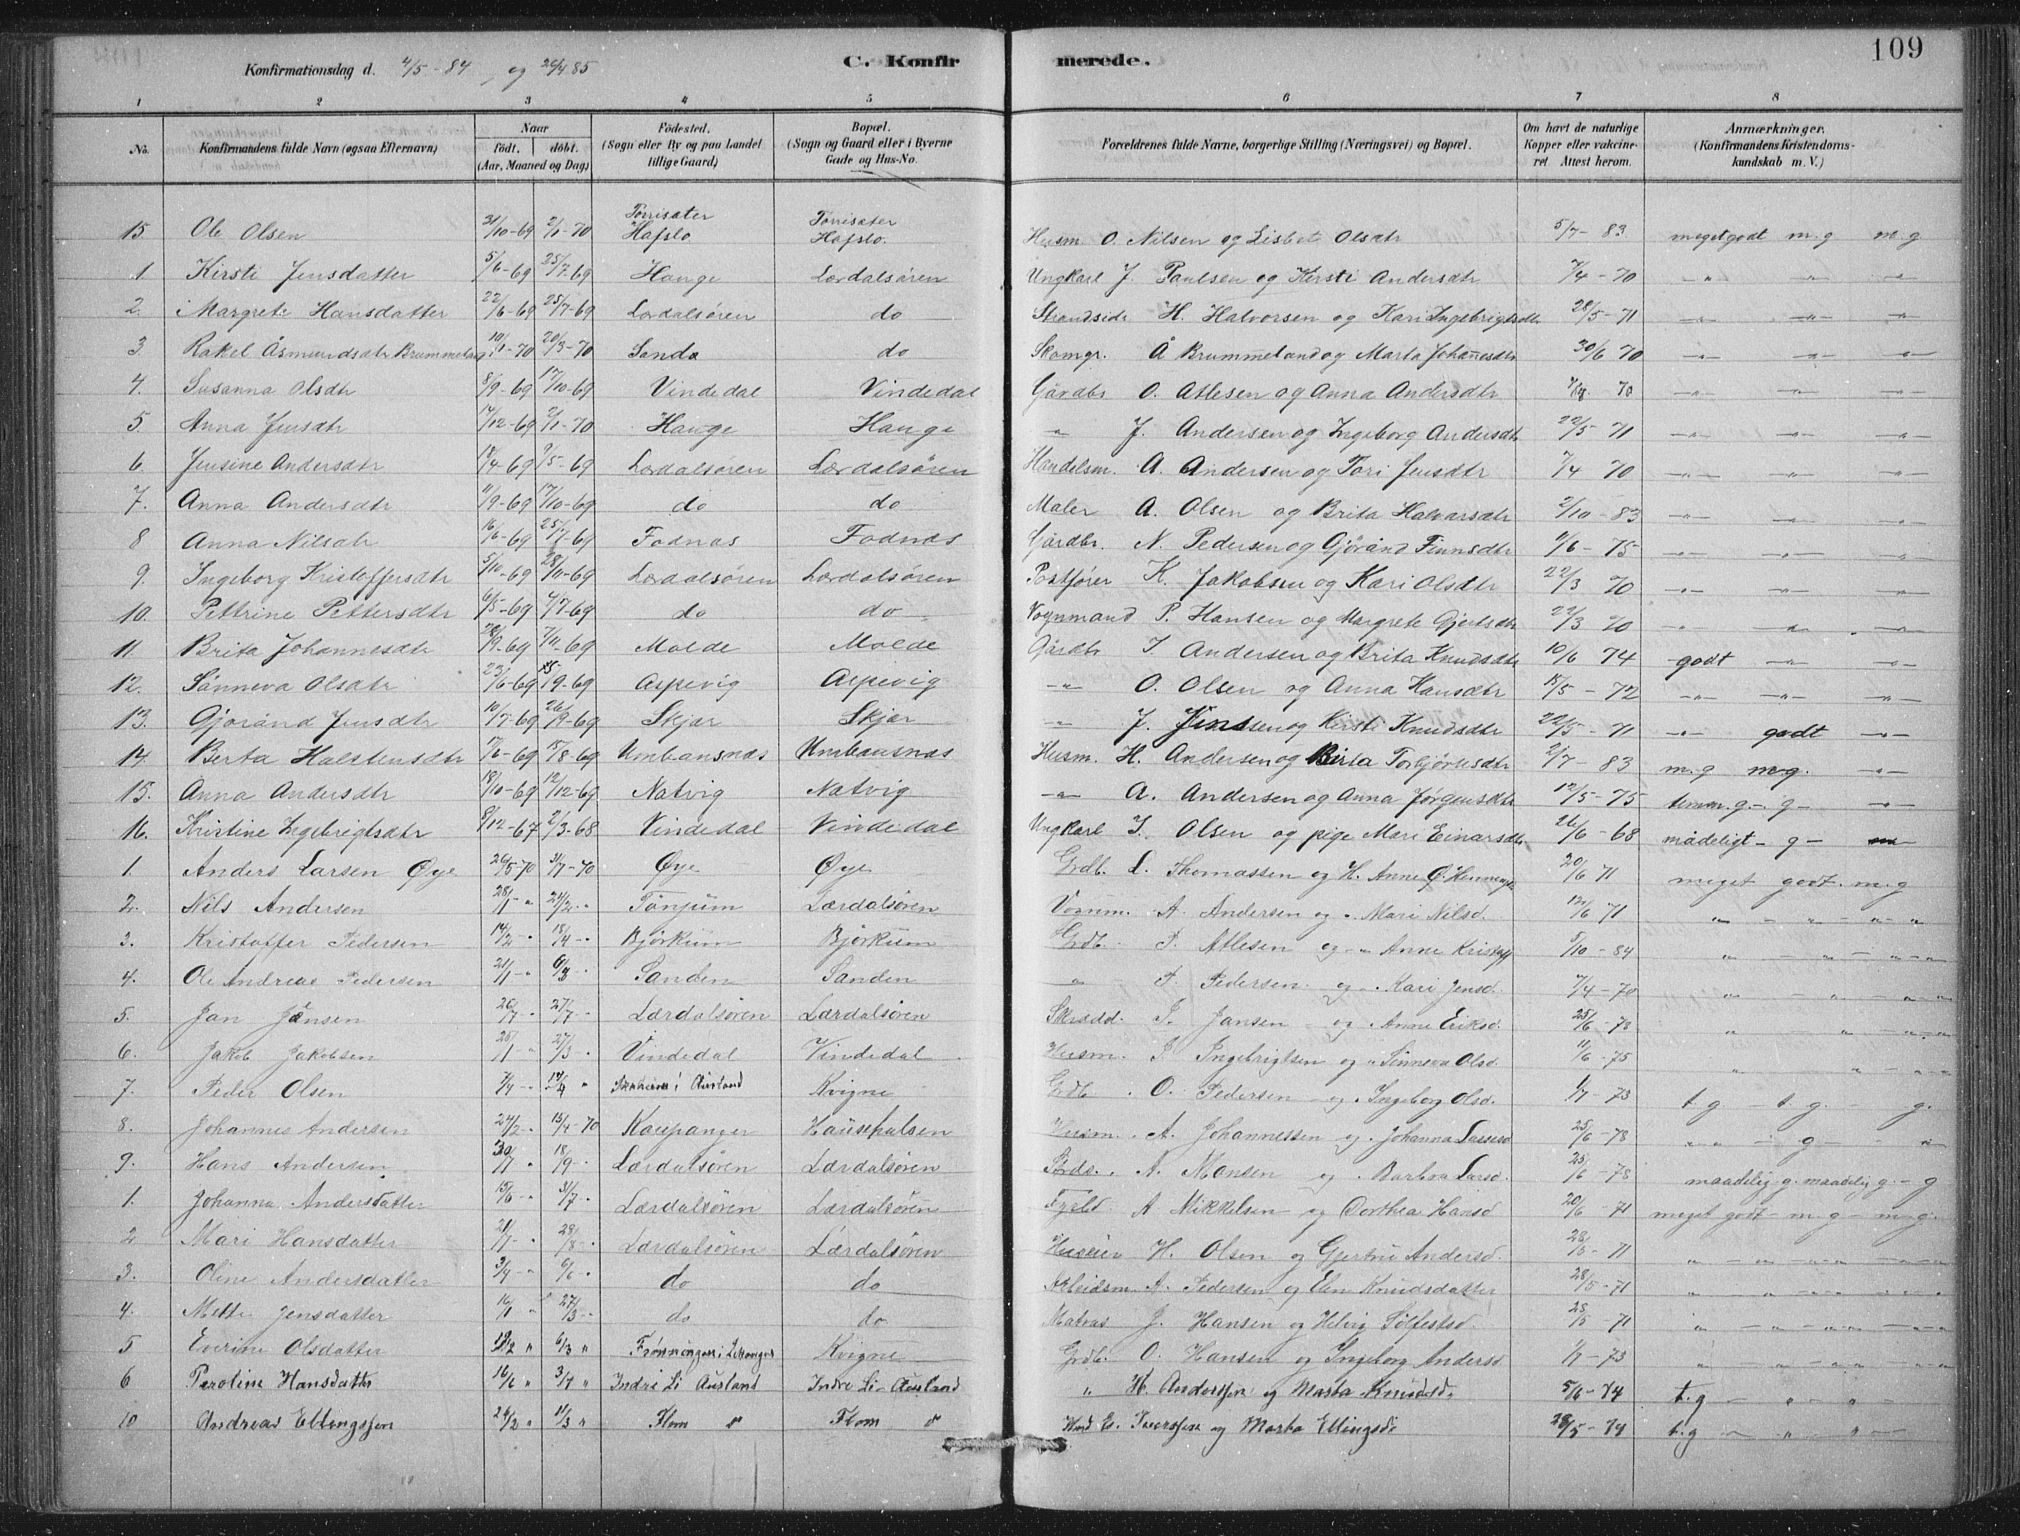 109
Konfirmationsdag d. 4/5 - 84, og 26/4 85 C. Konfirmerede.
1 2 3 4 5 6 7 8
No. Konfirmandens fulde Navn (ogsaa Efternavn) Naar født. døbt. (Aar, Maaned og Dag) Fødested. (Sogn eller By og paa Landet tillige Gaard) Bopæl. (Sogn og Gaard eller i Byerne Gade og Hus-No. Forældrenes fulde Navne, borgerlige Stilling (Næringsvei) og Bopæl. Om havt de naturlige Kopper eller vakcineret. Attest herom. Anmærkninger. (Konfirmandens Kristendomskundskab m. V.)
15 Ole Olsen 31/10-69 2/1-70 Torrisæter Hafslo Torrisæter Hafslo. Husm O. Nilsen og Lisbet Olsdtr 5/7-83. megetgodt m.g m.g
1 Kirsti Jensdatter 5/6-69 25/7-69 Hauge Lærdalsøren Ungkarl J. Paulsen og Kersti Andersdtr 7/4-70 -"- -"- -"-
2. Margrete Hansdatter 22/6-69 25/7-69 Lærdalsøren do Strandsid. H. Halvorsen og Kari Ingebrigtsdtr 28/5-71 -"- -"- -"-
3 Rakel Åsmundsdtr Brummeland 10/1-70 20/3-70 Sanda do Skomgr. Å Brummeland og Marta Johannesdtr 30/6 70 -"- -"- -"-
4. Susanna Olsdtr 8/9-69 17/10-69 Vindedal Vindedal Gårdbr O. Atlesen og Anna Andersdtr 70 -"- -"- -"-
5. Anna Jensdtr 17/12-69 2/1-70 Hauge Hauge -"- J. Andersen og Ingeborg Andersdtr 22/5-71 -"- -"- -"-
6. Jensine Andersdtr 18/4-69 9/5-69 Lærdalsøren Lærdalsøren Handelsm. A. Andersen og Tori Jensdtr 7/4 70 -"- -"- -"-
7. Anna Andersdtr 11/9-69 17/10-69 do do Maler A. Olsen og Brita Halvarsdtr 2/10-83 -"- -"- -"-
8 Anna Nilsdtr 16/6-69 25/7-69 Fodnæs Fodnæs Gårdbr. N. Pedersen og Gjøránd Finnsdtr 11/6-75 -"- -"- -"-
9. Ingeborg Kristoffersdtr 5/10-69 28/11-69 Lærdalsøren Lærdalsøren Postfører K. Jakobsen og Kari Olsdtr 22/3 70 -"- -"- -"-
10. Pettrine Pettersdtr 6/5-69 4/7-69 do do Vognmand P. Hansen og Margrete Gjertsdtr 22/3 70 -"- -"- -"-
11. Brita Johannesdtr 28/9-69 7/11-69 Molde Molde Gårdbr J Andersen og Brita Knudsdtr 10/6 74 godt -"- -"-
12. Sønneva Olsdtr 23/6-69 5/9-69 Aspevig Aspevig -"- O. Olsen og Anna Hansdtr 15/5-72 -"- -"- -"-
13. Gjøránd Jensdtr 10/7-69 26/9-69 Skjær Skjær -"- J. Jenssen og Kirsti Knudsdtr 22/5-71 -"- godt -"-
14. Berta Halstensdtr 17/6-69 15/8-69 Umbausnæs Umbausnæs Husm. H. Andersen og Birta Torbjørnsdtr 2/7-83 m.g m.g. -"-
15. Anna Andersdtr 18/10-69 12/12-69 Natvig Natvig -"- A. Andersen og Anna Jørgensdtr 12/5-75 temm.g - g - -"-
16. Kristine Ingebrigtsdtr 8/12-67 2/3-68 Vindedal Vindedal Ungkarl I. Olsen og pige Mari Einarsdtr 26/6-68 mådeligt - g -
1. Anders Larsen Øye 26/5-70 31/7-70 Øye Øye Grdb. L. Thomassen og H. Anne O. 20/6 71 meget godt. m.g
2. Nils Andersen 28/1 - " 21/2 - Tønjum Lærdalsøren Vognm. A. Andersen og " Mari Nilsd. 12/6 71 " - " - " - "
3. Kristoffer Pedersen 14/2 - 18/4 - Bjørkum Bjørkum Grdb. P. Atlesen og " Anne Kristoff 5/10-84 " - " - " - "
4. Ole Andreas Pedersen 21/1 - " 6/3 - Sanden Sanden " P. Pedersen og " Kari Jensd. 7/4-70 " - " - " - "
5. Jan Jansen 26/7 - " 27/7 - Lærdalsøren Lærdalsøren Skrædd. J. Jansen og " Anne Eriksd. 25/6-78 " " - " - "
6. Jakob Jakobsen 25/1 " 27/3 - Vindedal Vindedal Husm. J. Ingebrigtsen og " Sønneva Olsd. 11/6-75 " " - " - "
7. Peder Olsen 7/4 - 17/4 " i Aurland Kvigne Grdb. O. Pedersen og " Ingeborg Olsd. 1/7-73 t.g - t.g. - g.
8. Johannes Andersen 24/2 - 15/4-70 Kaupanger Hausehulsen Husm. A. Johannessen og " Johanna Lassesd 25/6-78 " " - g - - "
9. Hans Andersen 30/7 " 18/9 - Lærdalsøren Lærdalsøren A. Monsen " Barbra Larsd. 25/6-78 maadelig g. maadelig g. - g
1. Johanna Andersdatter 15/6 " 31/7 - Lærdalsøren Lærdalsøren A Nikkelsen og Dorthea Hansd 20/6 71 meget godt - m.g - m.g.
2 Mari Hansdatter 21/7 - " 28/8 - Lærdalsøren Lærdalsøren Huseier H. Olsen og Gjertru Andersd. 28/5-71 " - " - " - "
3. Oline Andersdatter 3/4 - " 6/6 - do do Arbeidsm A. Pedersen og Elen Knudsdatter 28/5-71 " - " - " - "
4. Mette Jensdatter 16/1 " 27/3 - do do Matros J. Hansen og Helvig Sølfestsd. 28/5-71 " - " - " - "
5 Everine Olsdatter 12/2 " 6/3 " Frønningen i Leikanger Kvigne Grdb. O. Hansen og Ingeborg Andersd 1/7-73 " - " - " - "
6 Peroline Hansdatter 16/6 " 3/7 " Indre Li Aurland Indre Li - Aurland " H. Anderssen og Marta Knudsd. 5/6-74 t.g - " - " - "
10 Andreas Ellingssen 24/2 " 11/3 " Flom " Flom " E. Iverssen og Marta Ellingsd. 28/5-74 t.g - " - " - "